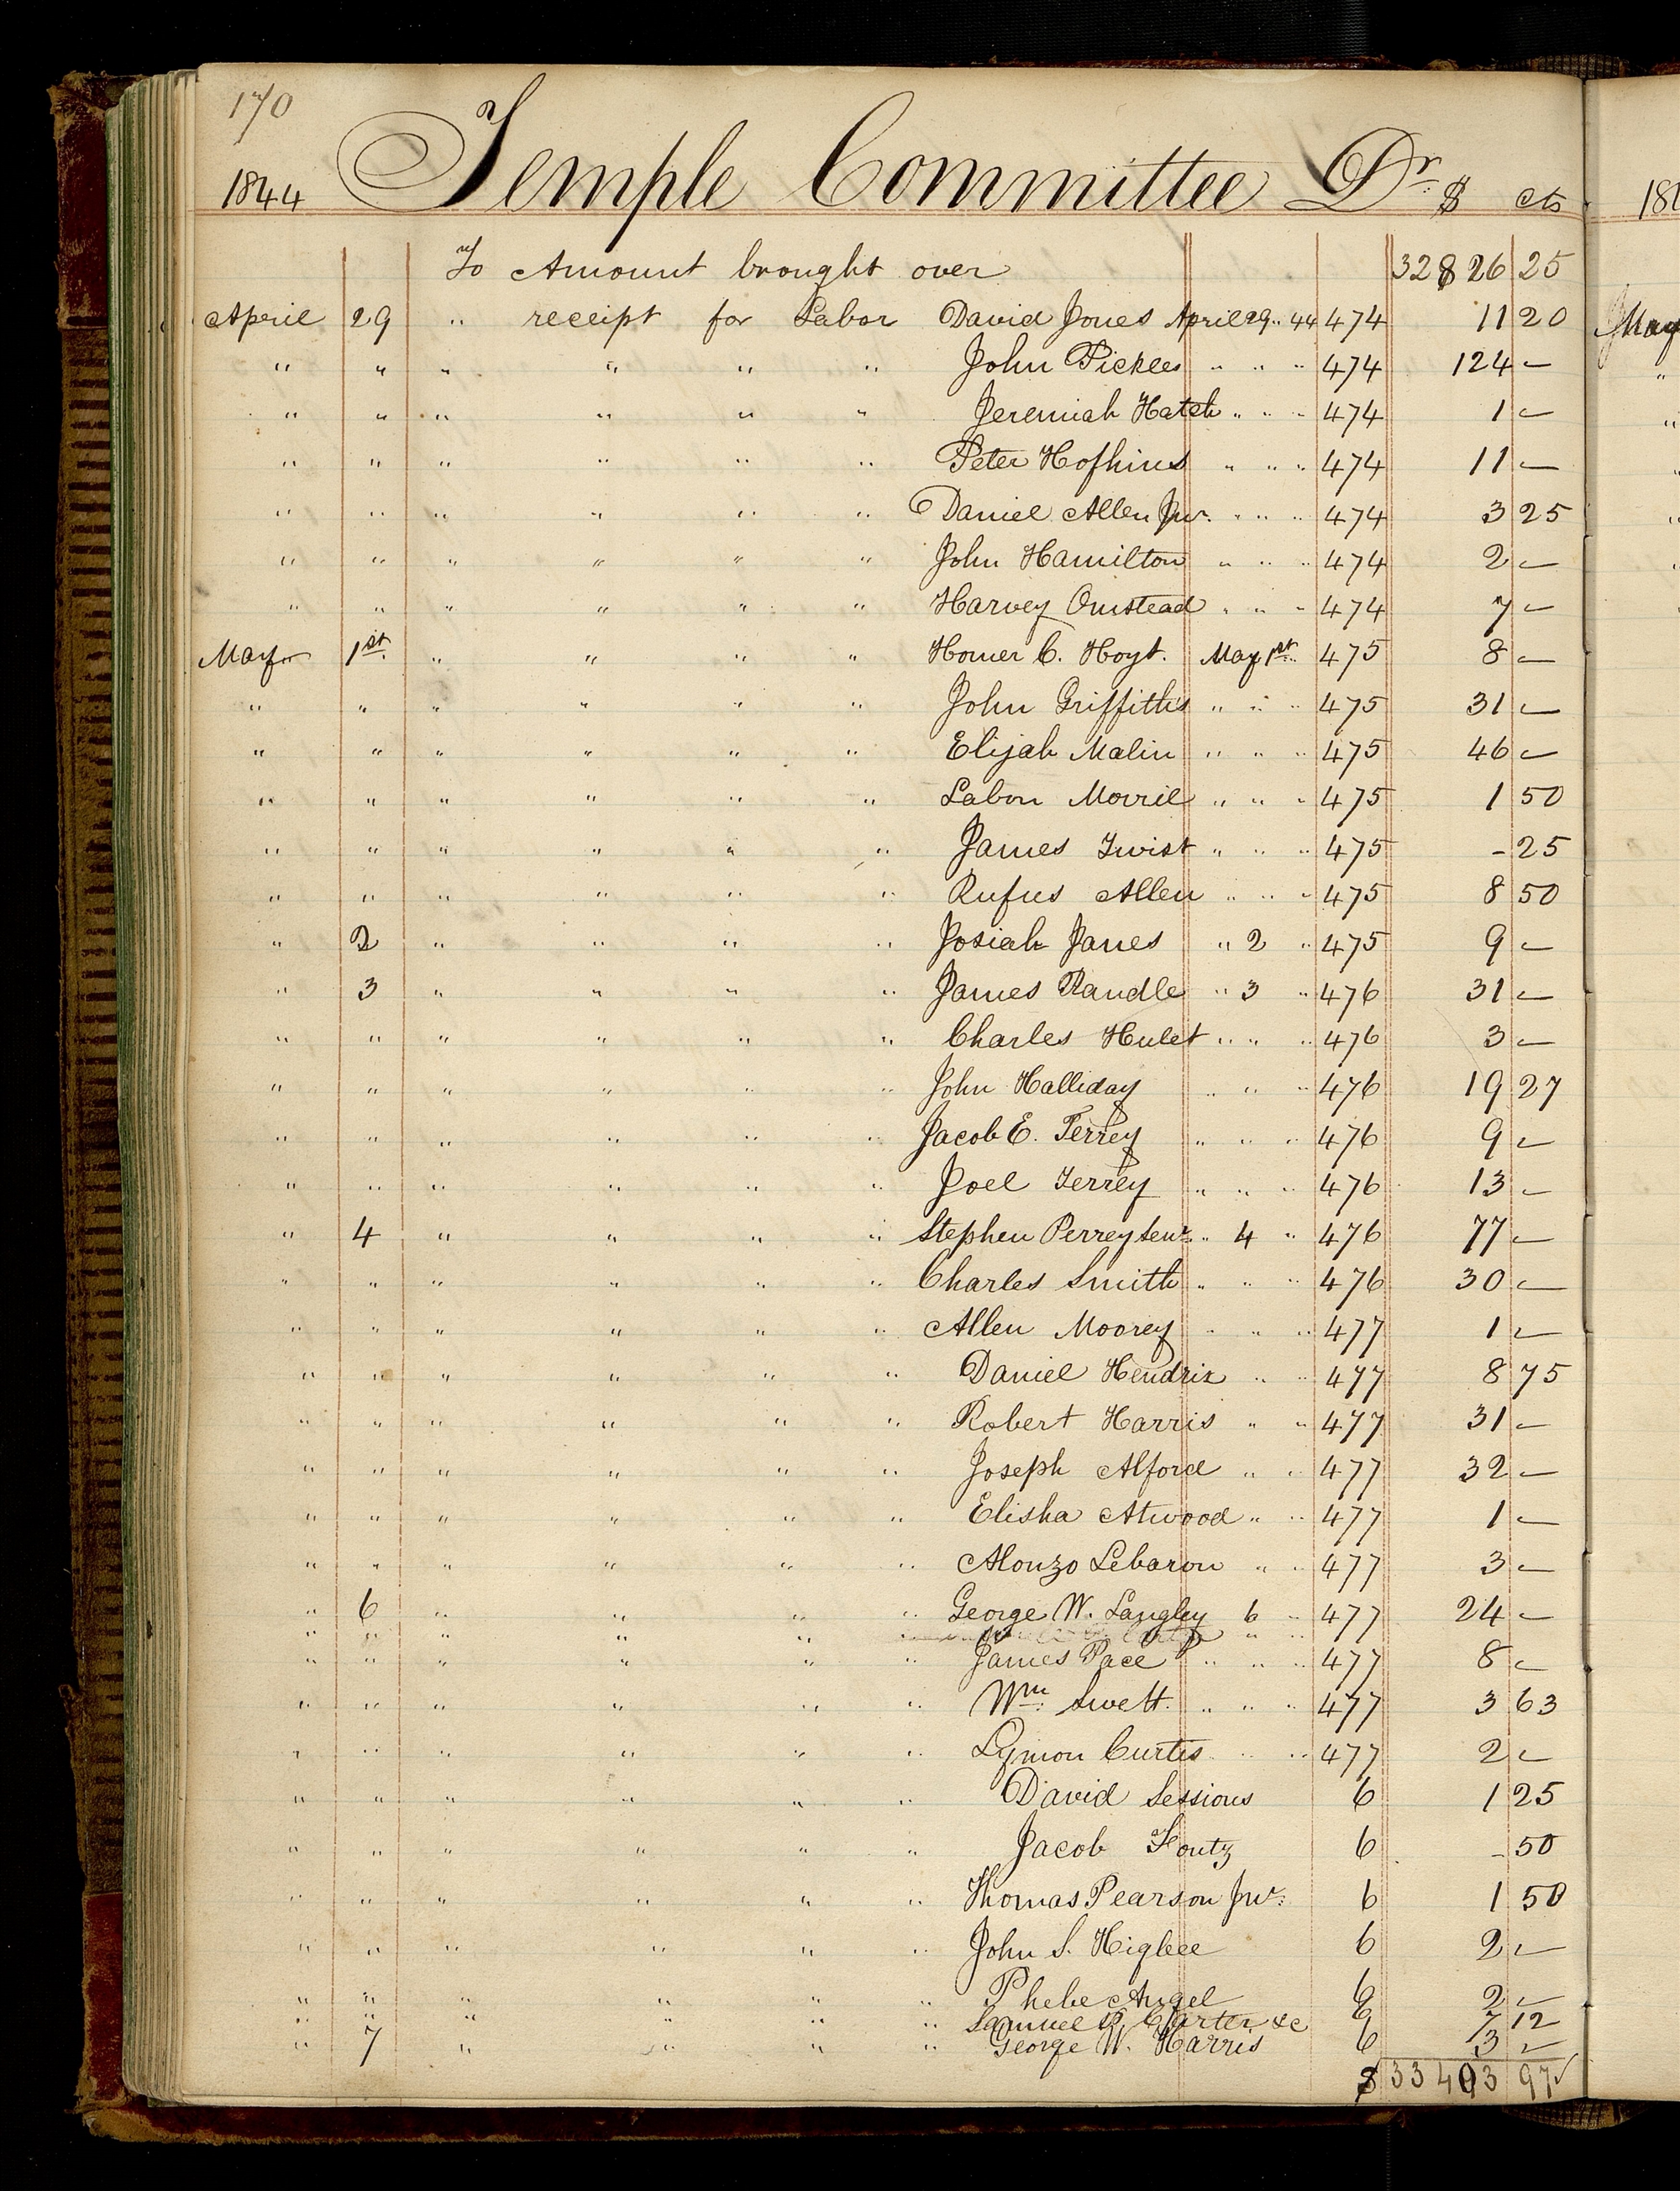 170
1844 Temple Committee Dr. $ cts
To Amount brought over 32826 25
April 29 " receipt for Labor David Jones April 29 " 44 474 11 20
" " " " " " John Pickles " " " 474 124 —
" " " " " " Jeremiah Hatch " " " 474 1 —
" " " " " " Peter Hofhines " " " 474 11 —
" " " " " " Daniel Allen Jur. " " " 474 3 25
" " " " " " John Hamilton " " " 474 2 —
" " " " " " Harvey Omstead " " " 474 7 —
May 1st " " " " Homer C. Hoyt. May 1st " 475 8 —
" " " " " " John Griffiths " " " 475 31 —
" " " " " " Elijah Malin " " " 475 46 —
" " " " " " Labon Morril " " " 475 1 50
" " " " " " James Twist " " " 475 - 25
" " " " " " Rufus Allen " " " 475 8 50
" 2 " " " " Josiah Janes " 2 " 475 9 —
" 3 " " " " James Randle " 3 " 476 31 —
" " " " " " Charles Hulet " " " 476 3 —
" " " " " " John Halliday " " " 476 19 27
" " " " " " Jacob E. Terrey " " " 476 9 —
" " " " " " Joel Terrey " " " 476 13 —
" 4 " " " " Stephen Perrey Senr. " 4 " 476 77 —
" " " " " " Charles Smith " " " 476 30 —
" " " " " " Allen Moorey " " " 477 1 —
" " " " " " Daniel Hendrix " " 477 8 75
" " " " " " Robert Harris " " 477 31 —
" " " " " " Joseph Alford " " 477 32 —
" " " " " " Elisha Atwood " " 477 1 —
" " " " " " Alonzo Lebaron " " 477 3 —
" 6 " " " " George W. Langley 6 " 477 24 —
" " " " " " " "
" " " " " " James Pace " " " 477 8 —
" " " " " " Wm. Swett. " " " 477 3 63
" " " " " " Lymon Curtis " " " 477 2 —
" " " " " " David Sessions 6 1 25
" " " " " " Jacob Foutz 6 - 50
" " " " " " Thomas Pearson Jur. 6 1 50
" " " " " " John S. Higbee 6 2 —
" " " " " " Phebe Angel 6 2 —
" " " " " " Samuel P. Carter &c 6 7 12
" 7 " " " " George W. Harris 6 3 —
$ 33403 97
May